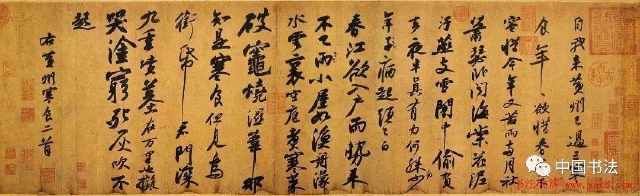 自我來黃州已過
食年〻欲惜春
容惜今年又苦雨兩月秋
蕭瑟卧聞海棠花泥
汙燕支雪闇中偷負
去夜半真有力何殊少
年子病起頭已白
春江欲入戶雨勢來
不已雨小屋如漁舟濛〻
水雲裏空庖煮寒菜
破竈燒濕葦那
知是寒食但見烏
銜帋君門深
九重墳墓在万里也擬
哭塗窮死灰吹不
起
右黃州寒食二首
中国书法